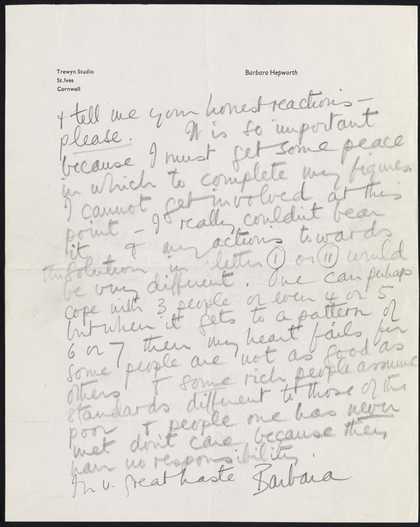 Trewyn Studio
St. Ives
Cornwall
Barbara Hepworth
& tell me your honest reactions –
please. It is so important
because I must get some peace
in which to complete my figures
I cannot get involved at this
point – I really couldn't bear
it & my actions towards
the solution in letter (I) or (II) would
be very different. One can perhaps
cope with 3 people or even 4 or 5
but when it gets to a pattern of
6 or 7 then my heart fails for
some people are not as good as
others & some rich people assume
standards different to those of the
poor & people one has never
met don't care, because they
have no responsibility.
In v. great haste Barbara